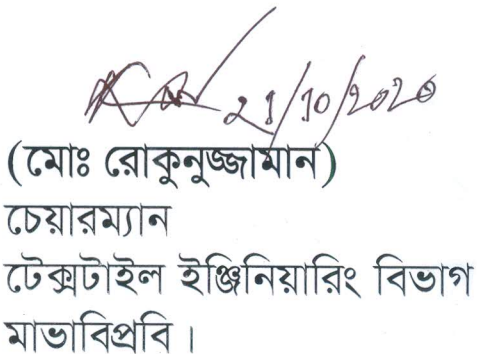 21/10/2020
(মোঃ রোকুনুজ্জামান)
চেয়ারম্যান
টেক্সটাইল ইঞ্জিনিয়ারিং বিভাগ
মাভাবিপ্রবি।